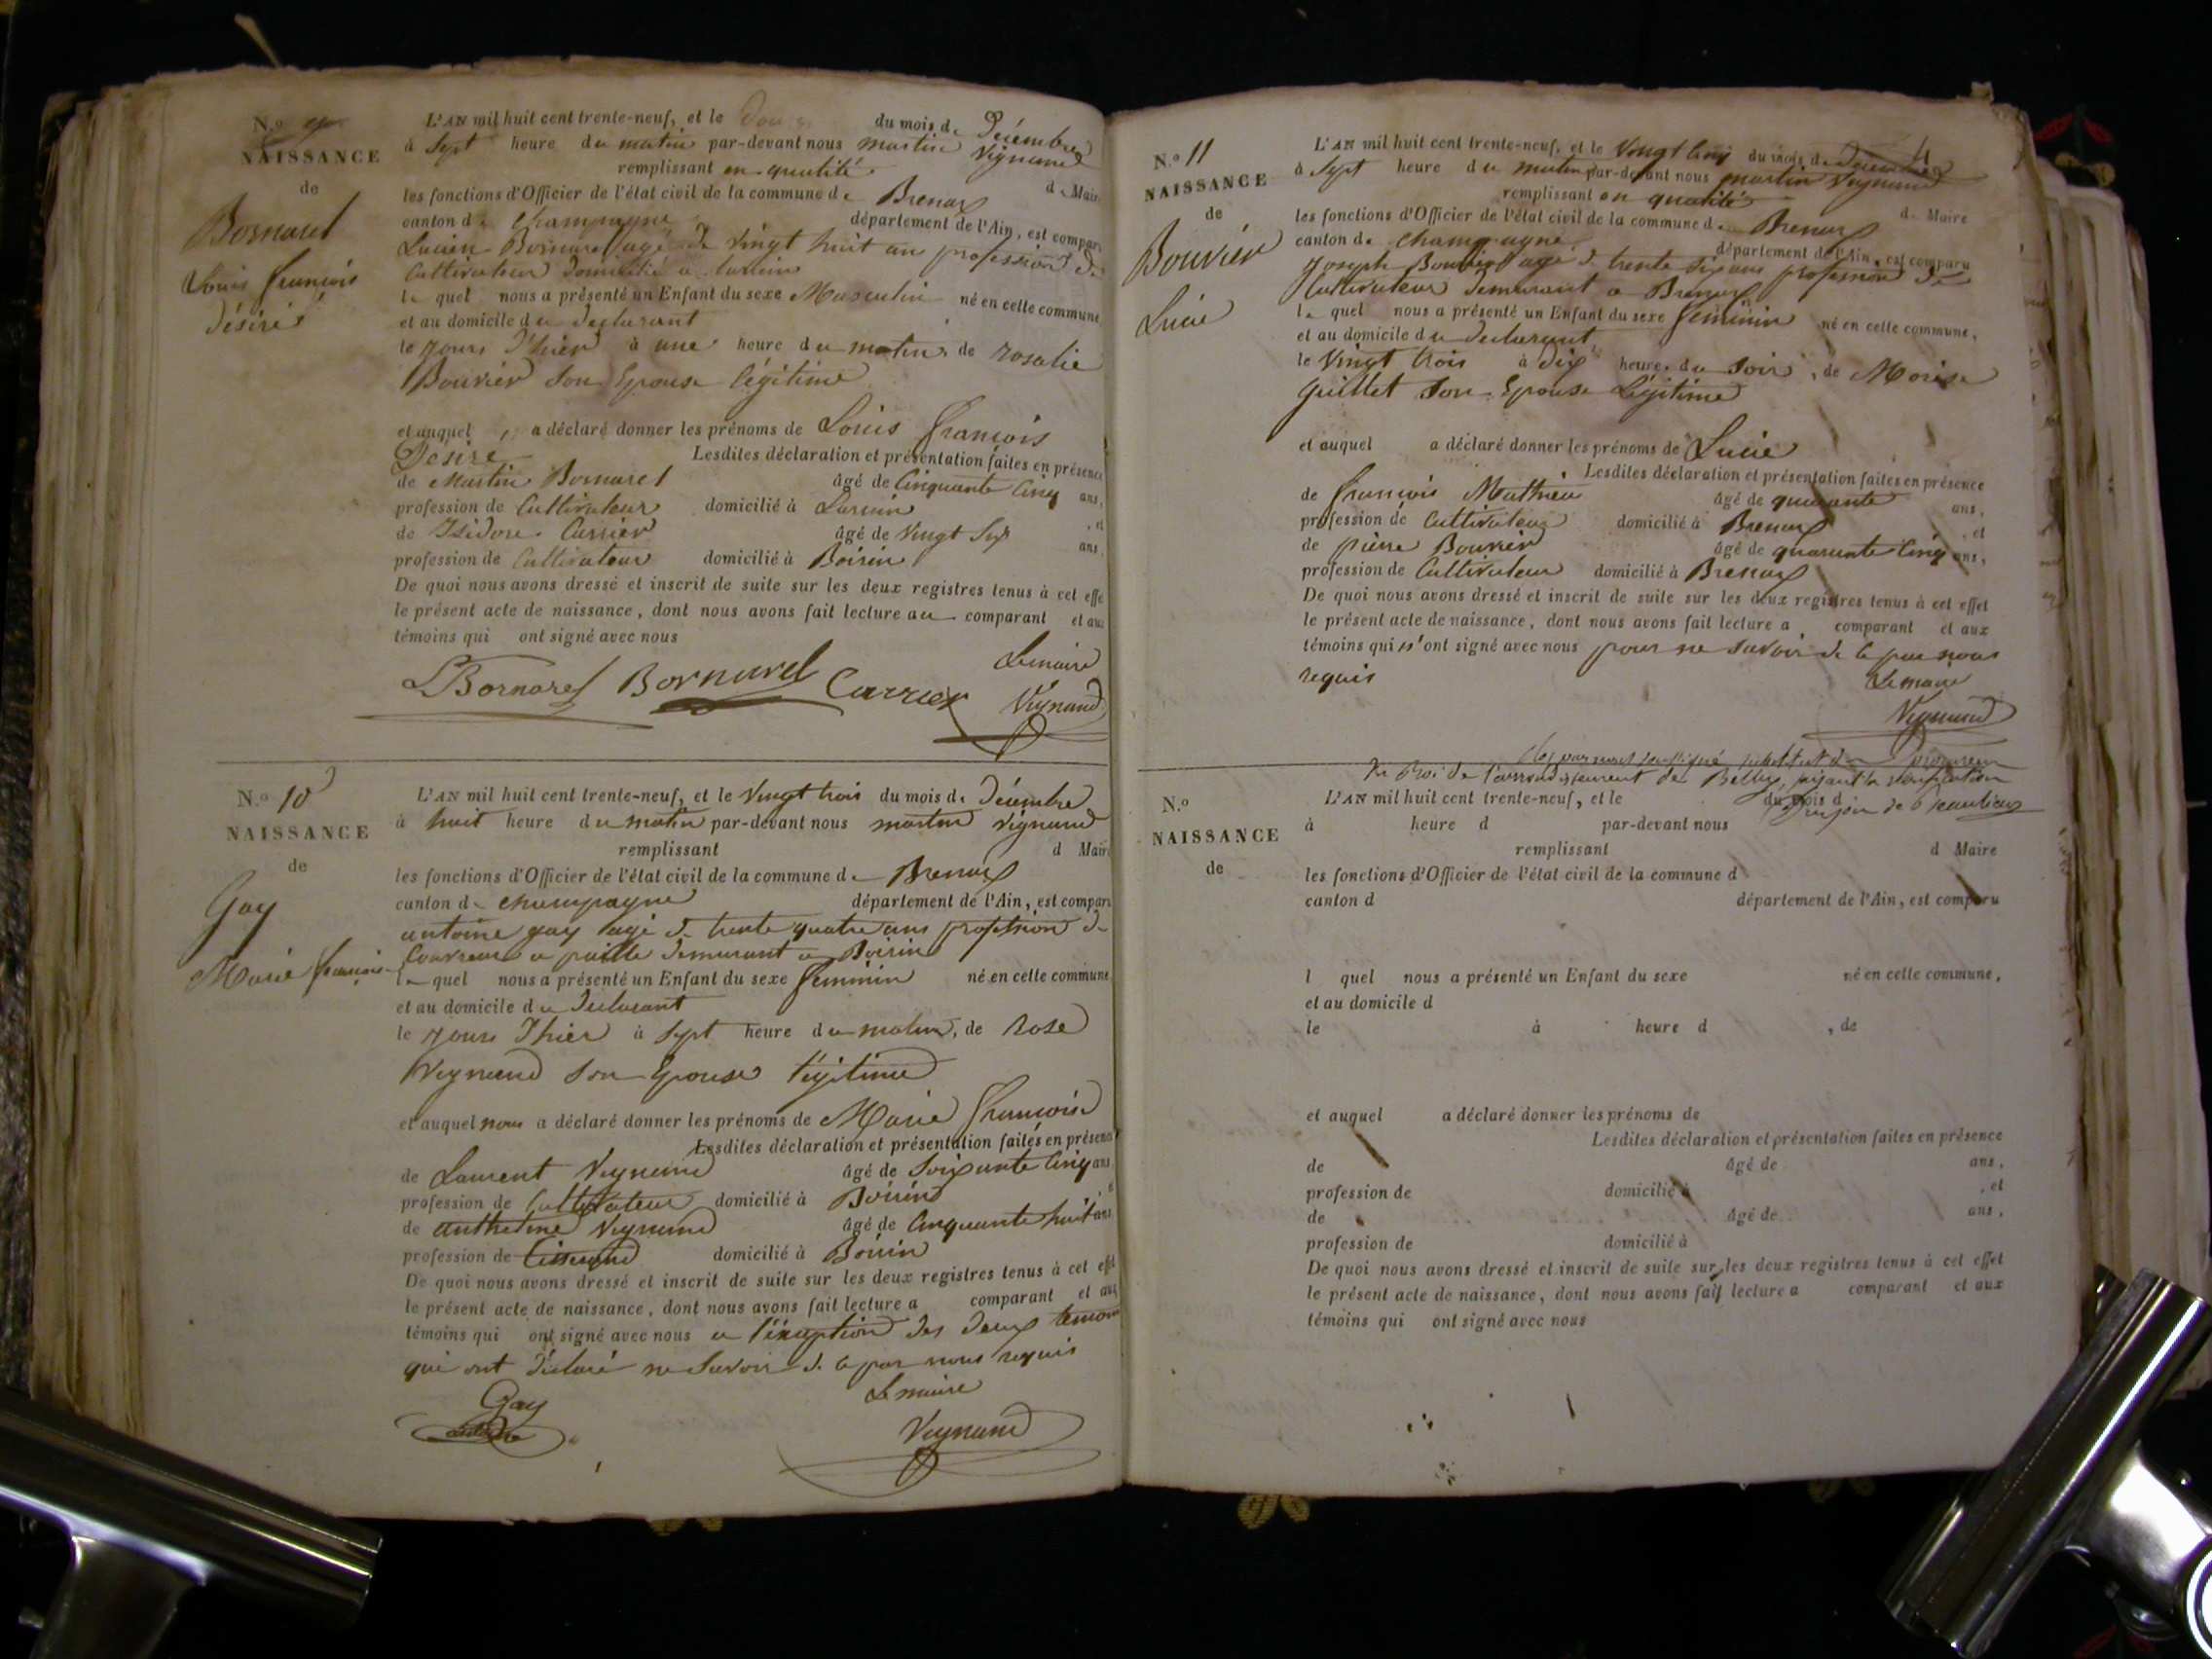 N.o 9
NAISSANCE
de
Bornarel
Louis François
Désiré
L'AN mil huit cent trente-neuf, et le douze du mois de Décembre
à Sept heure du matin par-devant nous martin Vignand
remplissant en qualité de Maire
les fonctions d'Officier de l'état civil de la commune de Brenaz
canton de Champagne département de l'Ain, est comparu
Lucien Bornarel agé de vingt huit an profession de
Cultivateur Domicilié a
le quel nous a présenté un Enfant du sexe Masculin né en cette commune
et au domicile du declarant
le jours d'hier à une heure du matin, de rosalie
Bouvier son Epouse légitime
et auquel a déclaré donner les prénoms de Louis François
Désire Lesdites déclaration et présentation faites en présence
de Martin Bornarel âgé de Cinquante Cinq ans,
profession de Cultivateur domicilié à , et
de Isidore Carrier âgé de vingt Six ans,
profession de Cultivateur domicilié à Boirin
De quoi nous avons dressé et inscrit de suite sur les deux registres tenus à cet effe
le présent acte de naissance, dont nous avons fait lecture au comparant et aux
témoins qui ont signé avec nous
Lemaire
LBornarel Bornarel Carrier Vignand
N.o 10
NAISSANCE
de
Gay
Marie françoise
L'AN mil huit cent trente-neuf, et le vingt trois du mois de Décembre
à huit heure du matin par-devant nous martin Vignand
remplissant d Maire
les fonctions d'Officier de l'état civil de la commune de Brenaz
canton de Champagne département de l'Ain, est comparu
antoine gay agé de trente quatre ans profession de
Couvreur a paille demeurant a Boirin
le quel nous a présenté un Enfant du sexe feminin né en cette commune
et au domicile du declarant
le jours d'hier à Sept heure du matin, de Rose
Vignand son Epouse légitime
et auquel nous a déclaré donner les prénoms de Marie françoise
Lesdites déclaration et présentation faites en présence
de Laurent Vignand âgé de Soixante Cinq ans
profession de Cultivateur domicilié à Boirin
de anthelme Vignand âgé de Cinquante huit ans
profession de Tisserand domicilié à Boirin
De quoi nous avons dressé et inscrit de suite sur les deux registres tenus à cet effet
le présent acte de naissance, dont nous avons fait lecture a comparant et aux
témoins qui ont signé avec nous a l'exception des deux temoins
qui ont déclaré ne savoir de ce par nous requis
Gay Le maire
Vignand
4
N.o 11
NAISSANCE
de
Bouvier
Lucie
L'AN mil huit cent trente-neuf, et le vingt Cinq du mois de Décembre
à Sept heure du matin par-devant nous martin Vignand
remplissant en qualité de Maire
les fonctions d'Officier de l'état civil de la commune de Brenaz
canton de Champagne département de l'Ain, est comparu
Joseph Bouvier agé de trente Six ans profession de
Cultivateur demeurant a Brenaz
le quel nous a présenté un Enfant du sexe feminin né en cette commune,
et au domicile du declarant
le vingt trois à dix heure du soir, de Morise
Guillet son Epouse Légitime
et auquel a déclaré donner les prénoms de Lucie
Lesdites déclaration et présentation faites en présence
de François Mathieu âgé de quarante ans,
profession de Cultivateur domicilié à Brenaz , et
de pierre Bouvier âgé de quarante Cinq ans,
profession de Cultivateur domicilié à Brenaz
De quoi nous avons dressé et inscrit de suite sur les deux registres tenus à cet effet
le présent acte de naissance, dont nous avons fait lecture a comparant et aux
témoins qui n'ont signé avec nous pour ne savoir de ce par nous
requis Le maire
Vignand
substitut du procureur
du Roi de l'arrondissement de Belley,
N.o
NAISSANCE
de
L'AN mil huit cent trente-neuf, et le du mois d
à heure d par-devant nous
remplissant d Maire
les fonctions d'Officier de l'état civil de la commune d
canton d département de l'Ain, est comparu
l quel nous a présenté un Enfant du sexe né en cette commune,
et au domicile d
le à heure d , de
et auquel a déclaré donner les prénoms de
Lesdites déclaration et présentation faites en présence
de âgé de ans,
profession de domicilié à , et
de âgé de ans,
profession de domicilié à
De quoi nous avons dressé et inscrit de suite sur les deux registres tenus à cet effet
le présent acte de naissance, dont nous avons fait lecture a comparant et aux
témoins qui ont signé avec nous